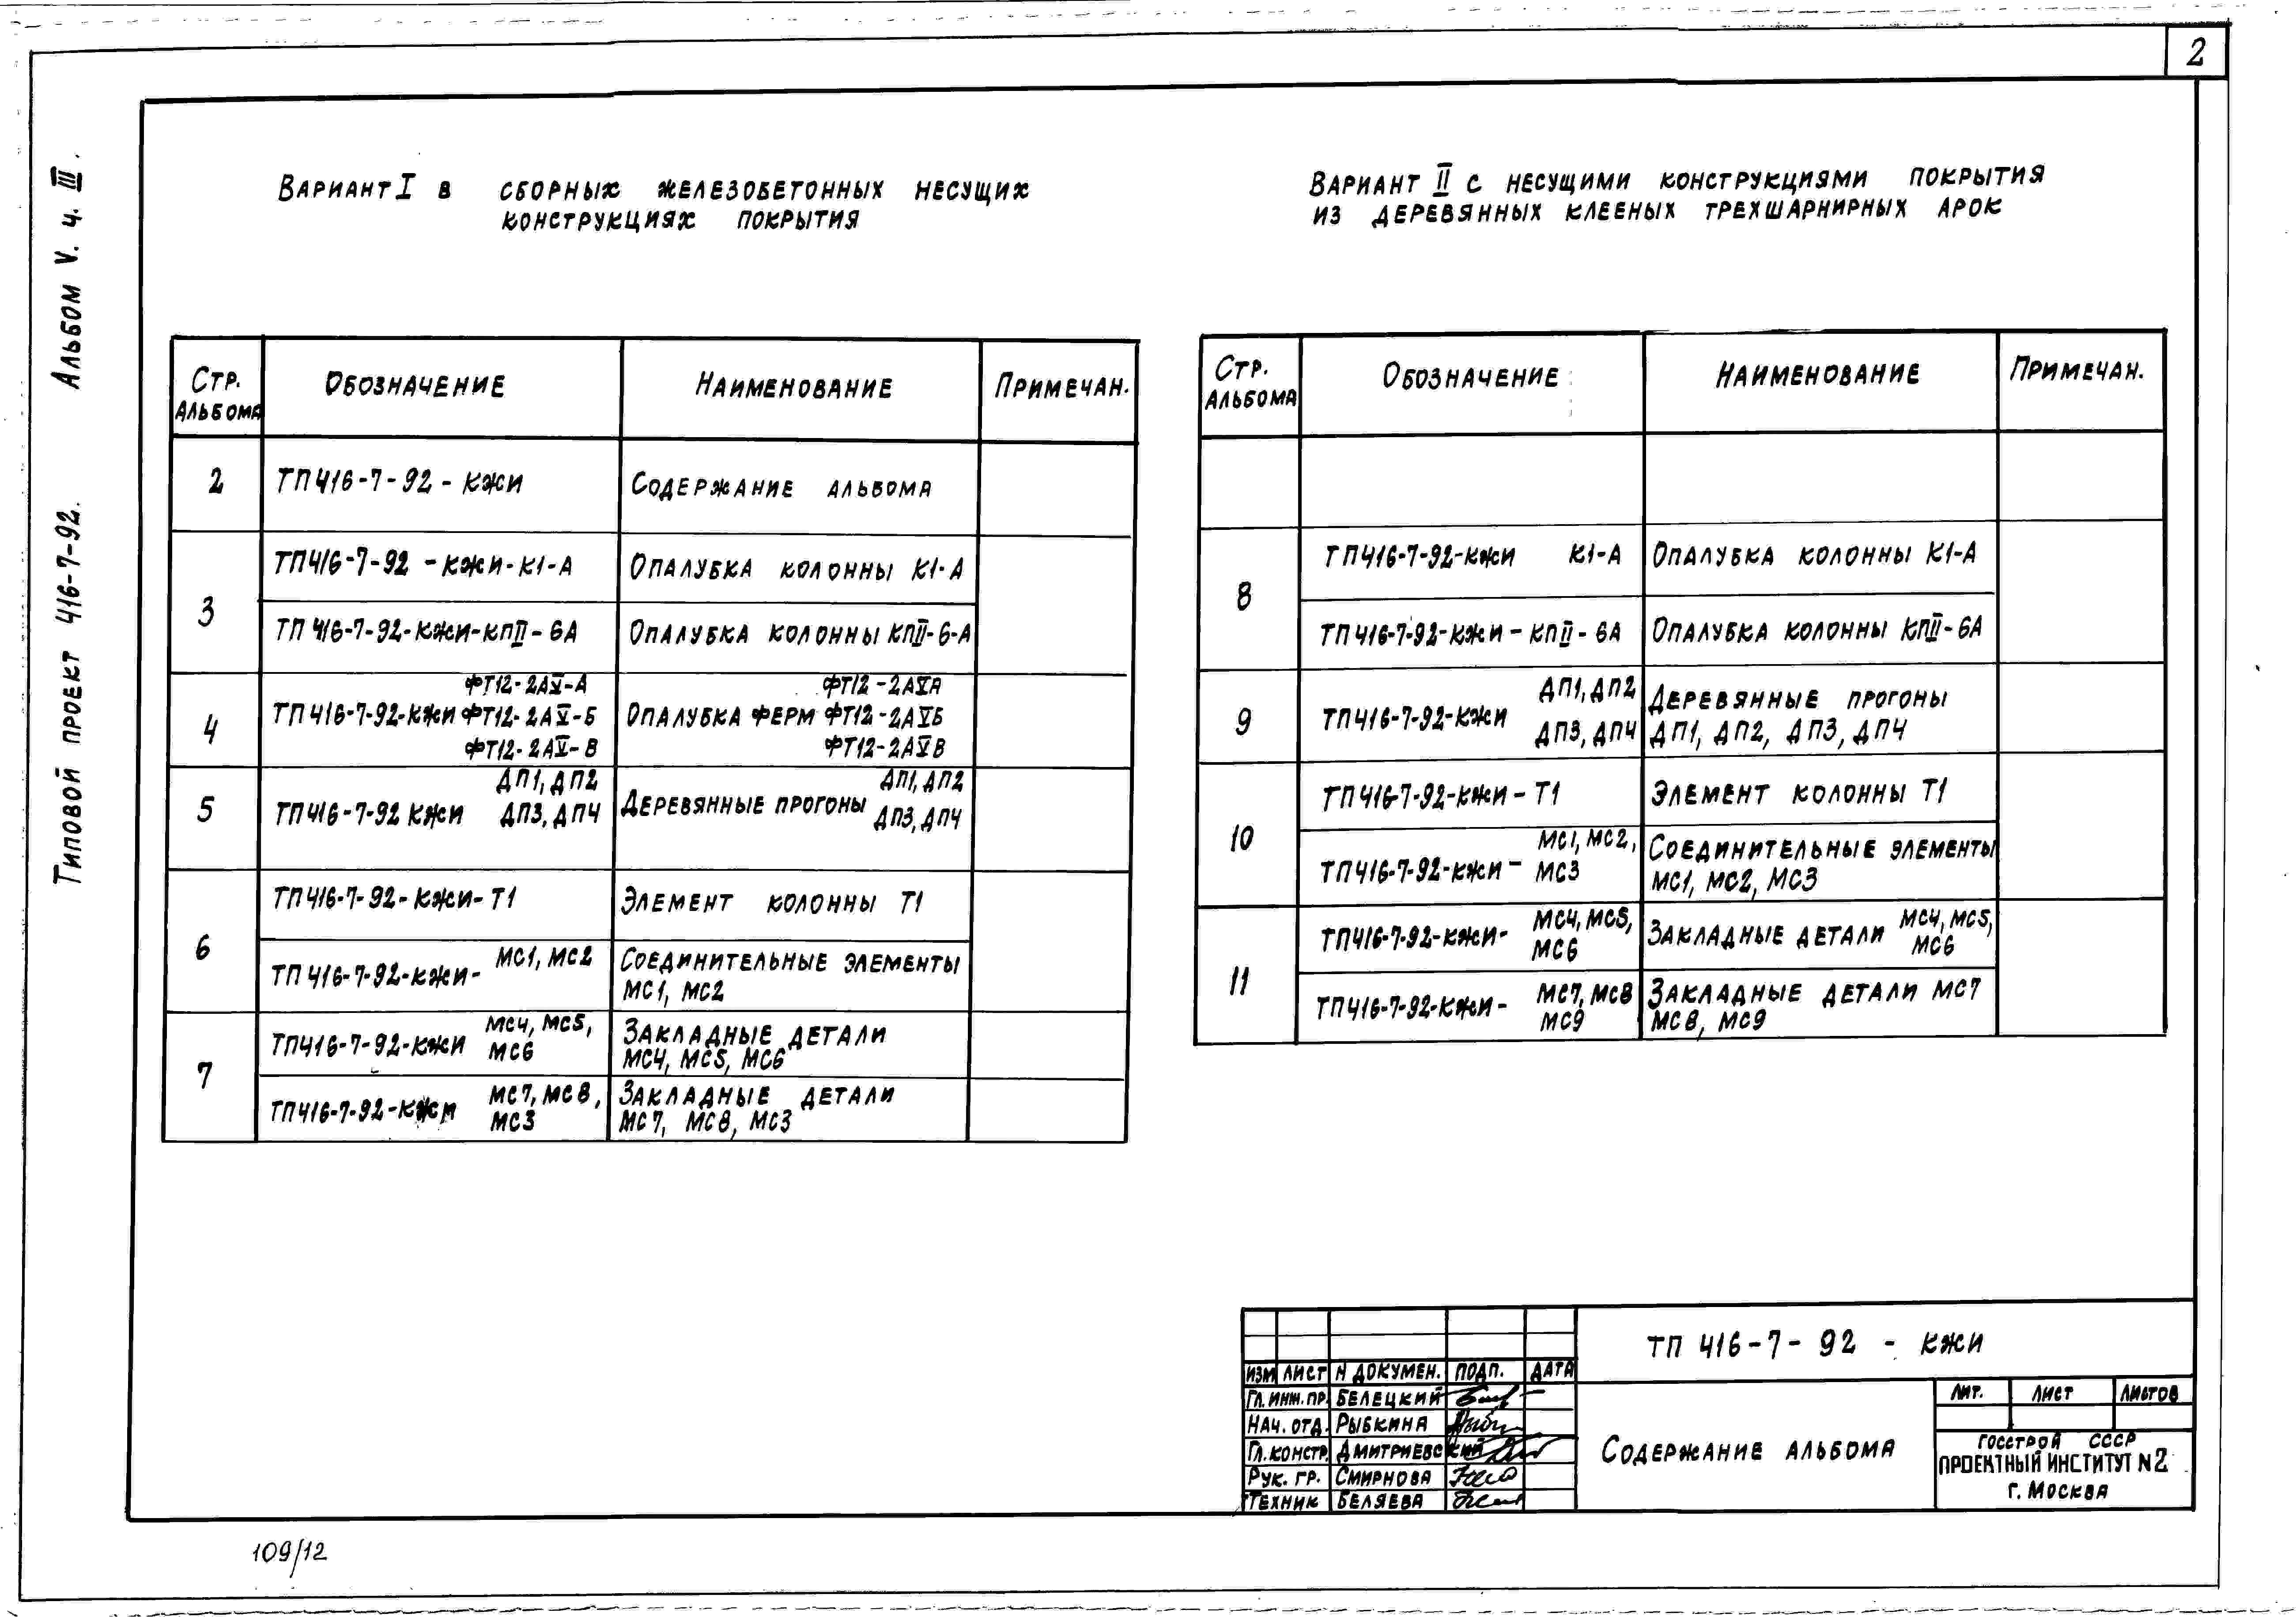 2
Типовой проект 416-7-92. Альбом V. ч. III.
Вариант I в сборных железобетонных несущих
конструкциях покрытия
Стр. альбома Обозначение Наименование Примечан.
2 ТП416-7-92-КЖИ Содержание альбома
3 ТП416-7-92-КЖИ-К1-А Опалубка колонны К1-А
ТП 416-7-92-КЖИ-КПII-6А Опалубка колонны КПII-6-А
ФТ12-2АV-А ФТ12-2АVА
4 ТП416-7-92-КЖИ ФТ12-2АV-Б Опалубка ферм ФТ12-2АVБ
ФТ12-2АV-В ФТ12-2АVВ
ДП1, ДП2 ДП1, ДП2
5 ТП416-7-92 КЖИ ДП3, ДП4 Деревянные прогоны ДП3, ДП4
6 ТП416-7-92-КЖИ-Т1 Элемент колонны Т1
ТП 416-7-92-КЖИ- МС1, МС2 Соединительные элементы
МС1, МС2
7 ТП416-7-92-КЖИ МС4, МС5, Закладные детали
МС6 МС4, МС5, МС6
ТП416-7-92-КЖИ МС7, МС8, Закладные детали
МС3 МС7, МС8, МС3
Вариант II с несущими конструкциями покрытия
из деревянных клееных трехшарнирных арок
Стр. альбома Обозначение Наименование Примечан.
8 ТП416-7-92-КЖИ К1-А Опалубка колонны К1-А
ТП416-7-92-КЖИ-КПII-6А Опалубка колонны КПII-6А
9 ТП416-7-92-КЖИ ДП1, ДП2 Деревянные прогоны
ДП3, ДП4 ДП1, ДП2, ДП3, ДП4
10 ТП416-7-92-КЖИ-Т1 Элемент колонны Т1
МС1, МС2, Соединительные элементы
ТП416-7-92-КЖИ- МС3 МС1, МС2, МС3
11 ТП416-7-92-КЖИ- МС4, МС5, Закладные детали МС4, МС5,
МС6 МС6
ТП416-7-92-КЖИ- МС7, МС8 Закладные детали МС7
МС9 МС8, МС9
ТП 416-7-92 - КЖИ
Изм Лист N докумен. Подп. Дата
Гл. инж. пр. Белецкий
Нач. отд. Рыбкина
Гл. констр. Дмитриевский
Рук. гр. Смирнова
Техник Беляева
Содержание альбома
Лит. Лист Листов
Госстрой СССР
Проектный институт N2
г. Москва
109/12